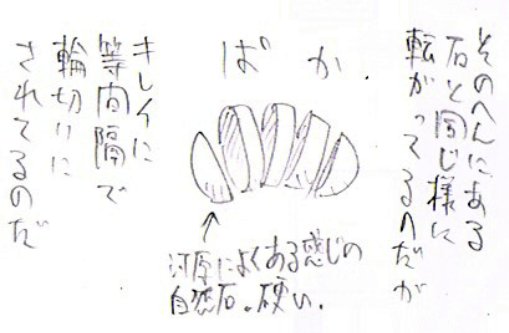 そのへんにある
石と同じ様に
転がってるのだが
ばか。
キレイに
等間隔で
輪切りに
されてるのだ
河原によくある感じの
自然石。硬い。